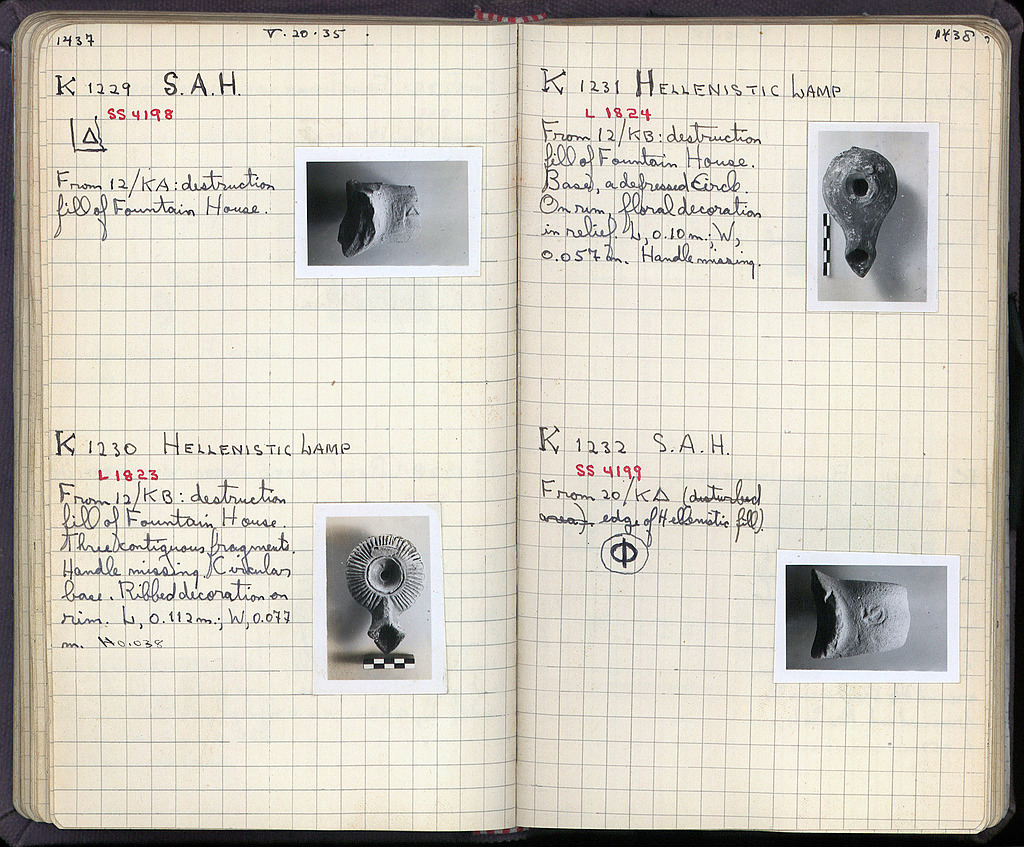 1437
V. 20. 35.
K 1229 S.A.H.
SS 4198
Δ
From 12/KA: destruction
fill of Fountain House.
K 1230 HELLENISTIC LAMP
L 1823
From 12/KB: destruction
fill of Fountain House.
Three contiguous fragments.
Handle missing. Circular
base. Ribbed decoration on
rim. L, 0.112 m.; W, 0.077
m. H 0.038
1438
K 1231 HELLENISTIC LAMP
L 1824
From 12/KB: destruction
fill of Fountain House.
Base, a depressed circle.
On rim, floral decoration
in relief. L, 0.10 m.; W,
0.057 m. Handle missing.
K 1232 S.A.H.
SS 4199
From 20/KΔ (disturbed
area), edge of Hellenistic fill)
Φ